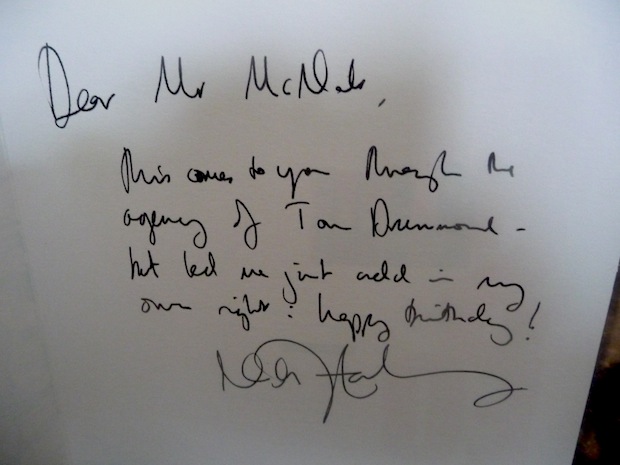 Dear Mr McNab,
This comes to you through the
agency of Tom Drummond –
but let me just add in my
own right: happy birthday!